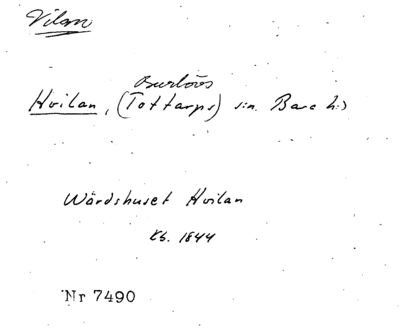 Vilan
Burlövs
Hvilan, (Tottarps) sn. Bara hd
Wärdshuset Hvilan
Kb. 1844
Nr 7490